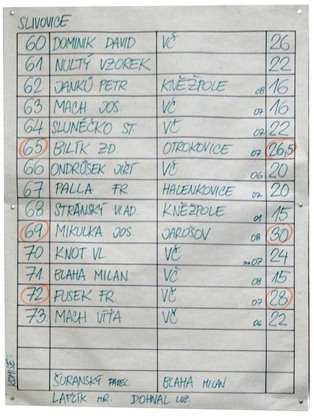 SLIVOVICE
60 DOMINIK DAVID VČ 26
61 NULTÝ VZOREK 22
62 JANKŮ PETR KNĚŽPOLE 08 16
63 MACH JOS VČ 07 16
64 SLUNÉČKO ST. VČ 07 22
65 BILTÍK ZD OTROKOVICE 07 26,5
66 ONDRŮŠEK JIŘÍ VČ 06 20
67 PALLA FR HALENKOVICE 07 20
68 STRÁNSKÝ VLAD. KNĚŽPOLE 01 15
69 MIKULKA JOS JAROŠOV 08 30
70 KNOT VL VČ 07 24
71 BLAHA MILAN VČ 08 15
72 FUSEK FR. VČ 07 28
73 MACH VÍŤA VČ 06 22
ŠURANSKÝ PAVEL BLAHA MILAN
LAPČÍK MIR. DOHNAL LUB.